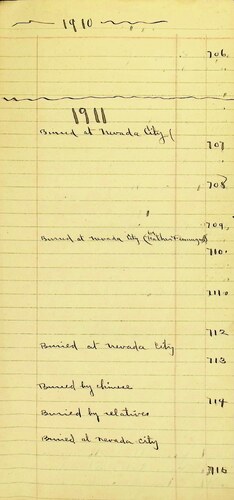 1910
706
1911
Buried at Nevada City (
707
708
709
Buried at Nevada City (
710
711
712
Buried at Nevada City
713
Buried by chinese
714
Buried by relatives
Buried at Nevada City